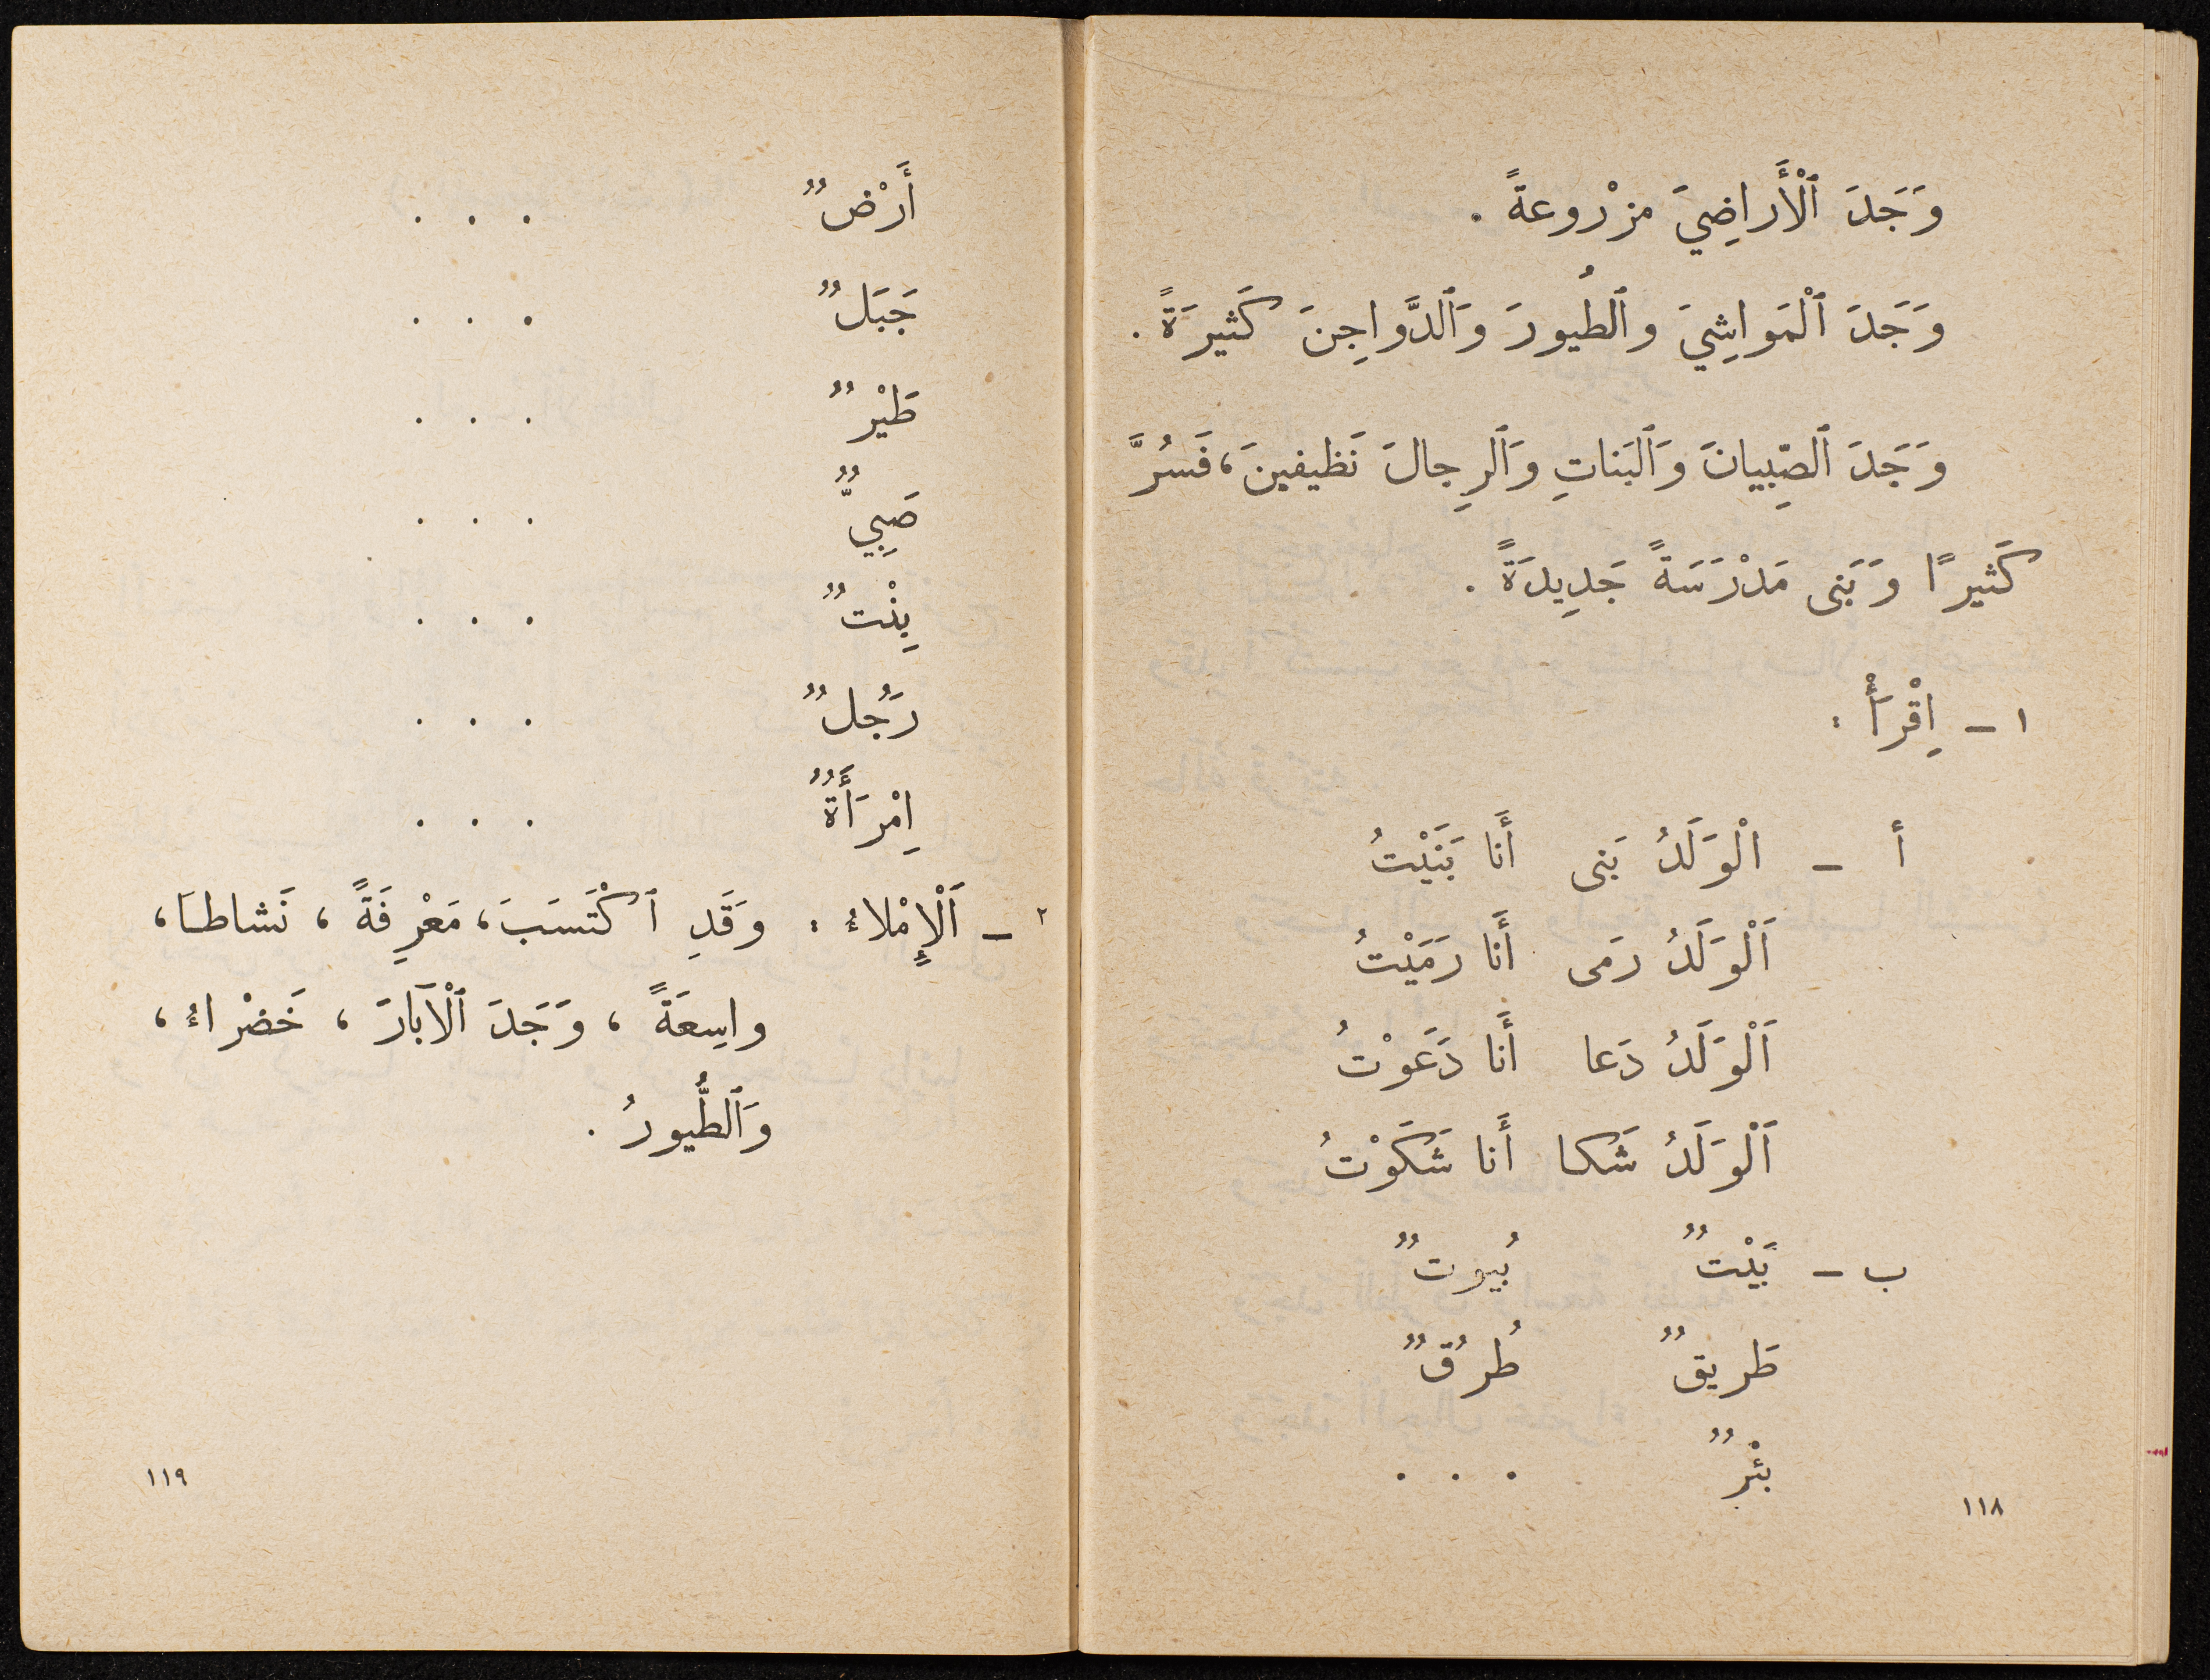 وَجَدَ ٱلْأَراضِيَ مزْروعةً .
وَجَدَ ٱلْمَواشِيَ وٱلطُيورَ وَٱلدَّواجِنَ كَثيرَةً .
وَجَدَ ٱلصِّبِيانَ وَٱلبَناتِ وَٱلرِجالَ نَظيفينَ، فَسُرَّ
كَثيرًا وَبَنى مَدْرَسَةً جَديِدَةً .
١ – اِقْرَأْ :
أ – الْوَلَدُ بَنى أَنا بَنَيْتُ
اَلْوَلَدُ رَمى أَنا رَمَيْتُ
اَلْوَلَدُ دَعا أَنا دَعَوْتُ
اَلْوَلَدُ شَكا أَنا شَكَوْتُ
ب – بَيْتٌ بُيوتٌ
طَريقٌ طُرُقٌ
بئْرٌ . . .
١١٨
أَرْضٌ . . .
جَبَلٌ . . .
طَيْرٌ . . .
صَبِيٌّ . . .
بِنْتٌ . . .
رَجُلٌ . . .
اِمْرَأَةٌ . . .
٢ – اَلْإِمْلاءُ : وَقَدِ ٱكْتَسَبَ، مَعْرِفَةً ، نَشاطـَا،
واسِعَةً ، وَجَدَ ٱلْآبارَ ، خَضْراءُ ،
وَٱلطُّيورُ .
١١٩